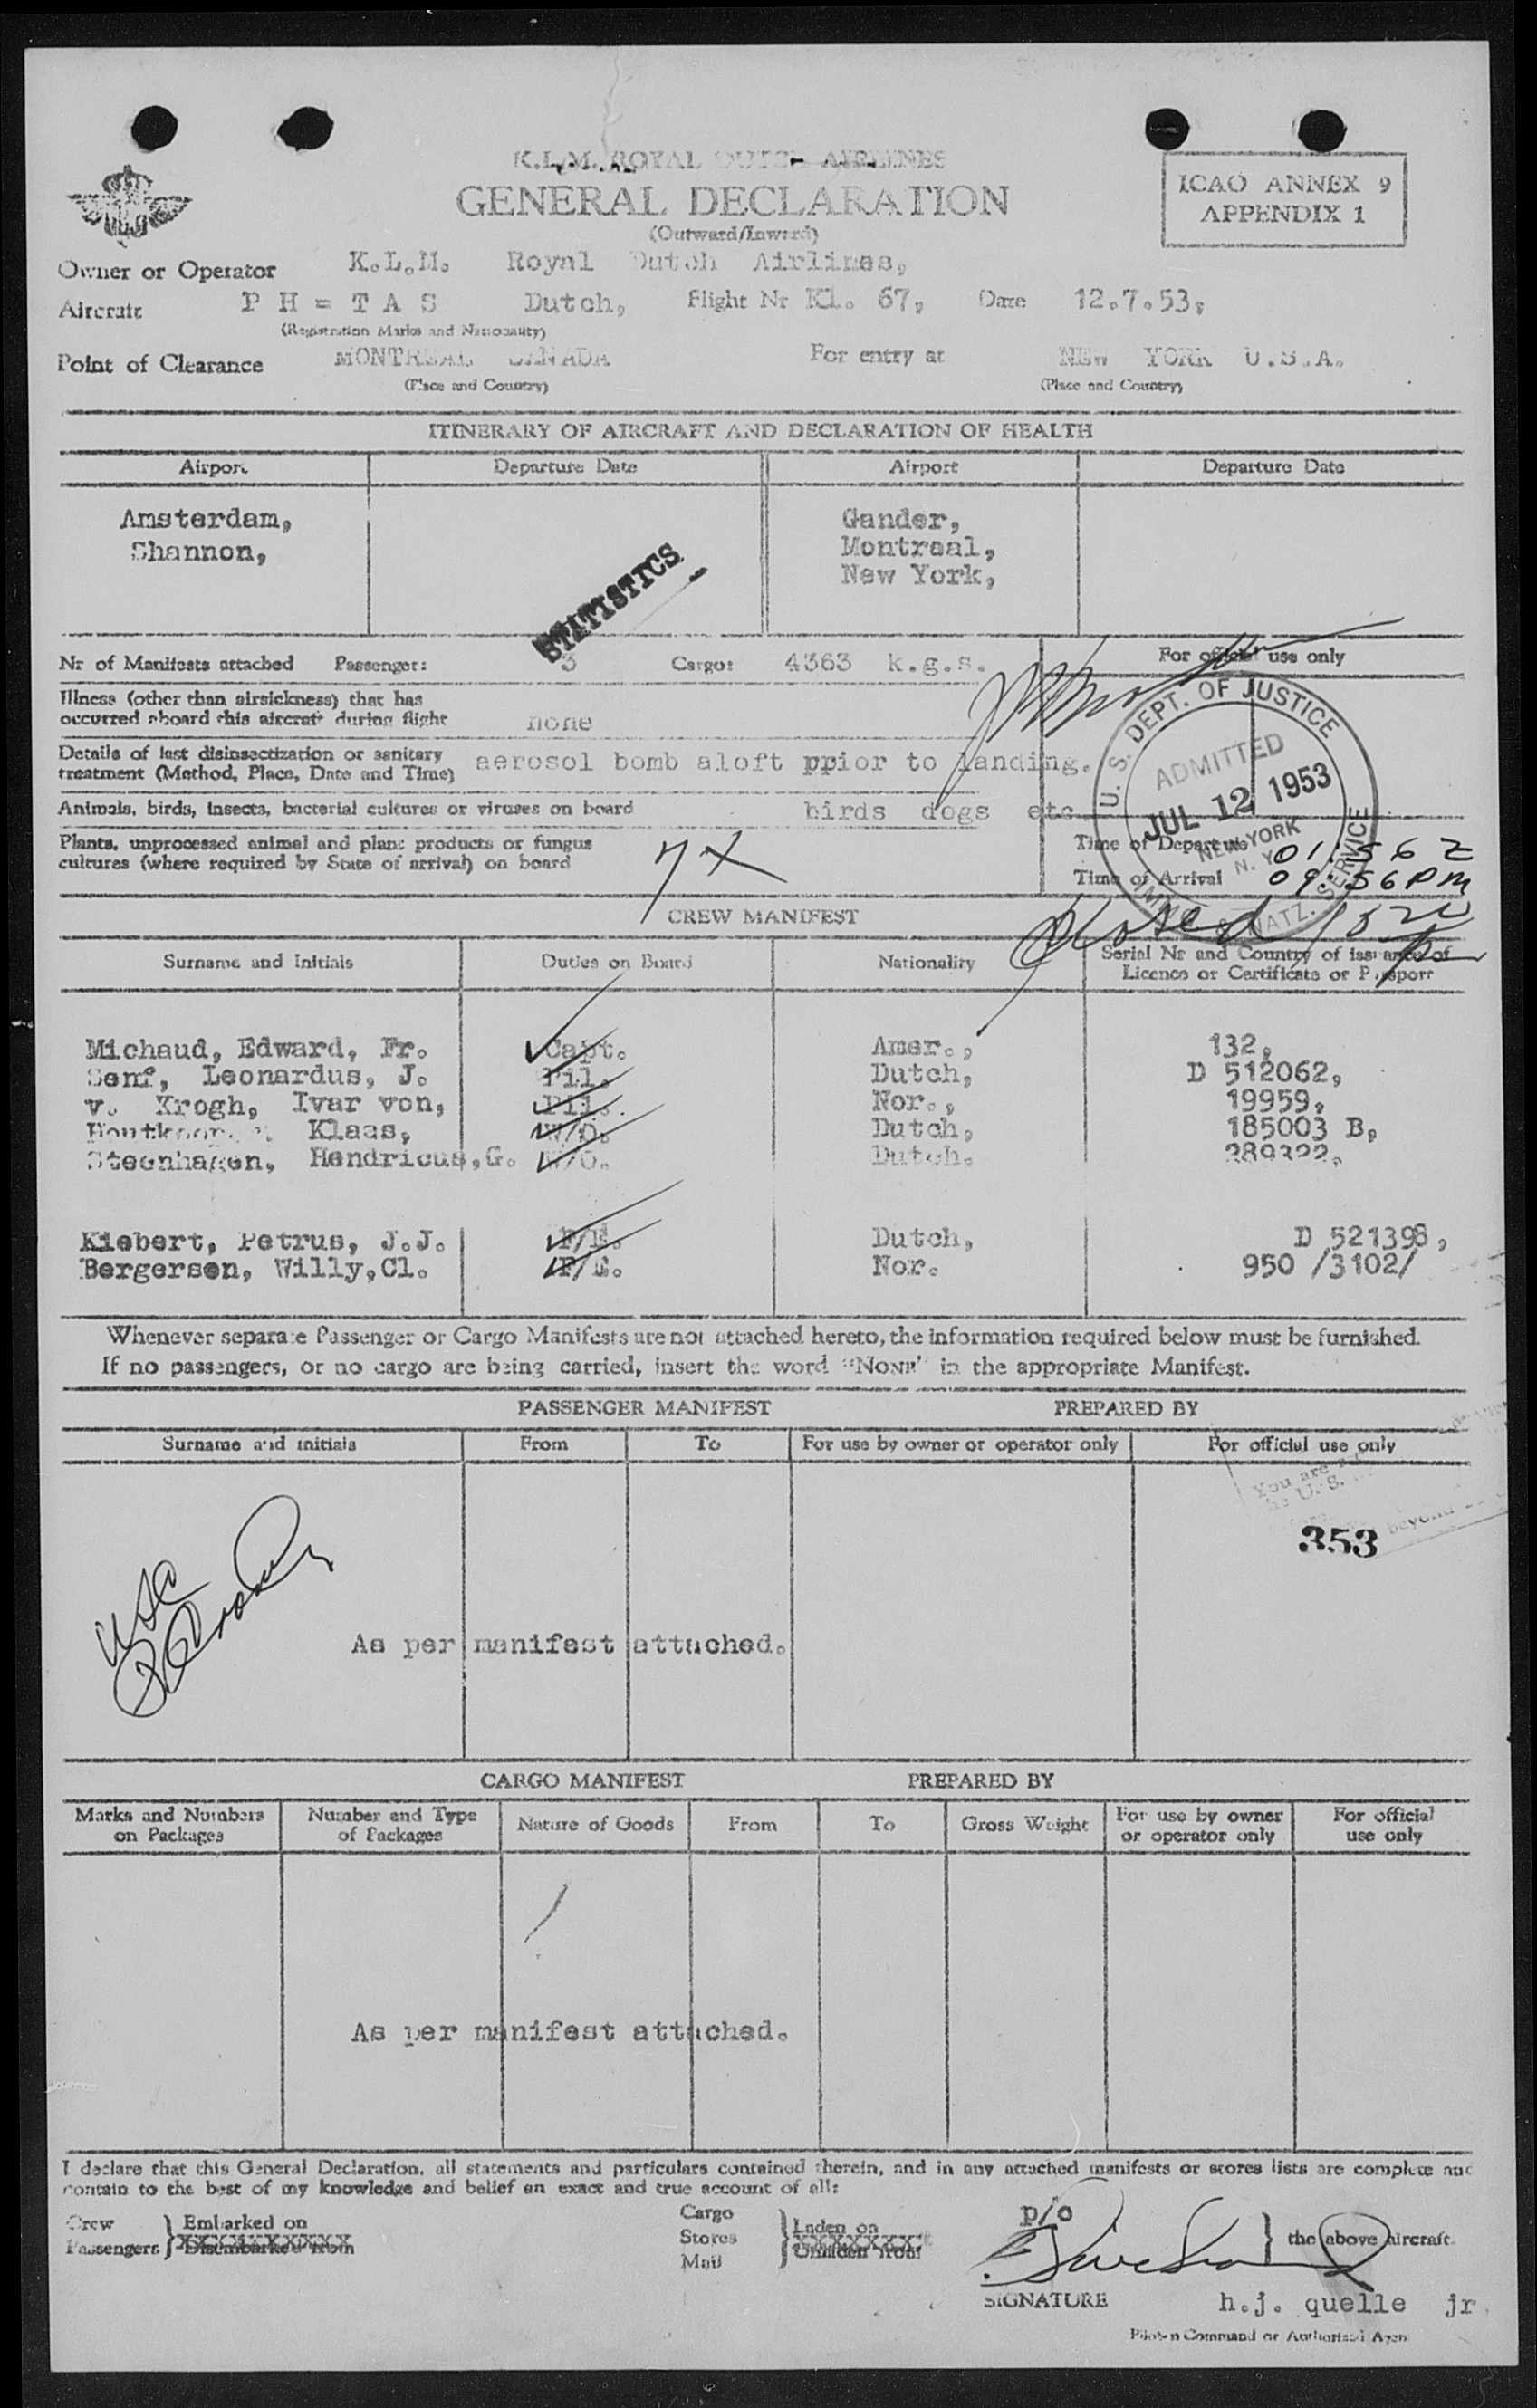 K.L.M. ROYAL DUTCH AIRLINES
GENERAL DECLARATION
(Outward/Inward)
ICAO ANNEX 9
APPENDIX 1
Owner or Operator K.L.M. Royal Dutch Airlines,
Aircraft P H = T A S Dutch, Flight Nr Kl. 67, Date 12.7.53,
(Registration Marks and Nationality)
Point of Clearance MONTREAL CANADA For entry at NEW YORK U.S.A.
(Place and Country) (Place and Country)
ITINERARY OF AIRCRAFT AND DECLARATION OF HEALTH
Airport Departure Date Airport Departure Date
Amsterdam, Gander,
Shannon, Montreal,
New York,
STATISTICS
Nr of Manifests attached Passenger: 3 Cargo: 4363 k.g.s. For official use only
Illness (other than airsickness) that has
occurred aboard this aircraft during flight none
Details of last disinsectization or sanitary
treatment (Method, Place, Date and Time) aerosol bomb aloft pprior to landing.
Animals, birds, insects, bacterial cultures or viruses on board birds dogs etc
Plants, unprocessed animal and plant products or fungus
cultures (where required by State of arrival) on board
U. S. DEPT. OF JUSTICE
ADMITTED
JUL 12 1953
NEW YORK
N. Y.
IMMIG. & NATZ. SERVICE
Time of Departure 01:56 Z
Time of Arrival 09:56 PM
7X
closed 1520
CREW MANIFEST
Surname and Initials Duties on Board Nationality Serial Nr and Country of issuance of
Licence or Certificate or Passport
Michaud, Edward, Fr. Capt. Amer., 132,
Senf, Leonardus, J. Pil. Dutch, D 512062,
v. Krogh, Ivar von, Pil. Nor., 19959,
Klaas, W/O. Dutch, 185003 B,
Steenhagen, Hendricus,G. W/O. Dutch. 289322,
Kiebert, Petrus, J.J. F/E. Dutch, D 521398,
Bergersen, Willy,Cl. F/E. Nor. 950 /3102/
Whenever separate Passenger or Cargo Manifests are not attached hereto, the information required below must be furnished.
If no passengers, or no cargo are being carried, insert the word "NONE" in the appropriate Manifest.
PASSENGER MANIFEST PREPARED BY
Surname and initials From To For use by owner or operator only For official use only
You are
the U.S.
beyond
353
USC
As per manifest attached.
CARGO MANIFEST PREPARED BY
Marks and Numbers on Packages Number and Type of Packages Nature of Goods From To Gross Weight For use by owner or operator only For official use only
As per manifest attached.
I declare that this General Declaration, all statements and particulars contained therein, and in any attached manifests or stores lists are complete and
contain to the best of my knowledge and belief an exact and true account of all:
Crew
Passengers
Embarked on
Disembarked from
Cargo
Stores
Mail
Laden on
Unladen from
p/o
the above aircraft.
SIGNATURE h.j. quelle jr
Pilot in Command or Authorised Agent